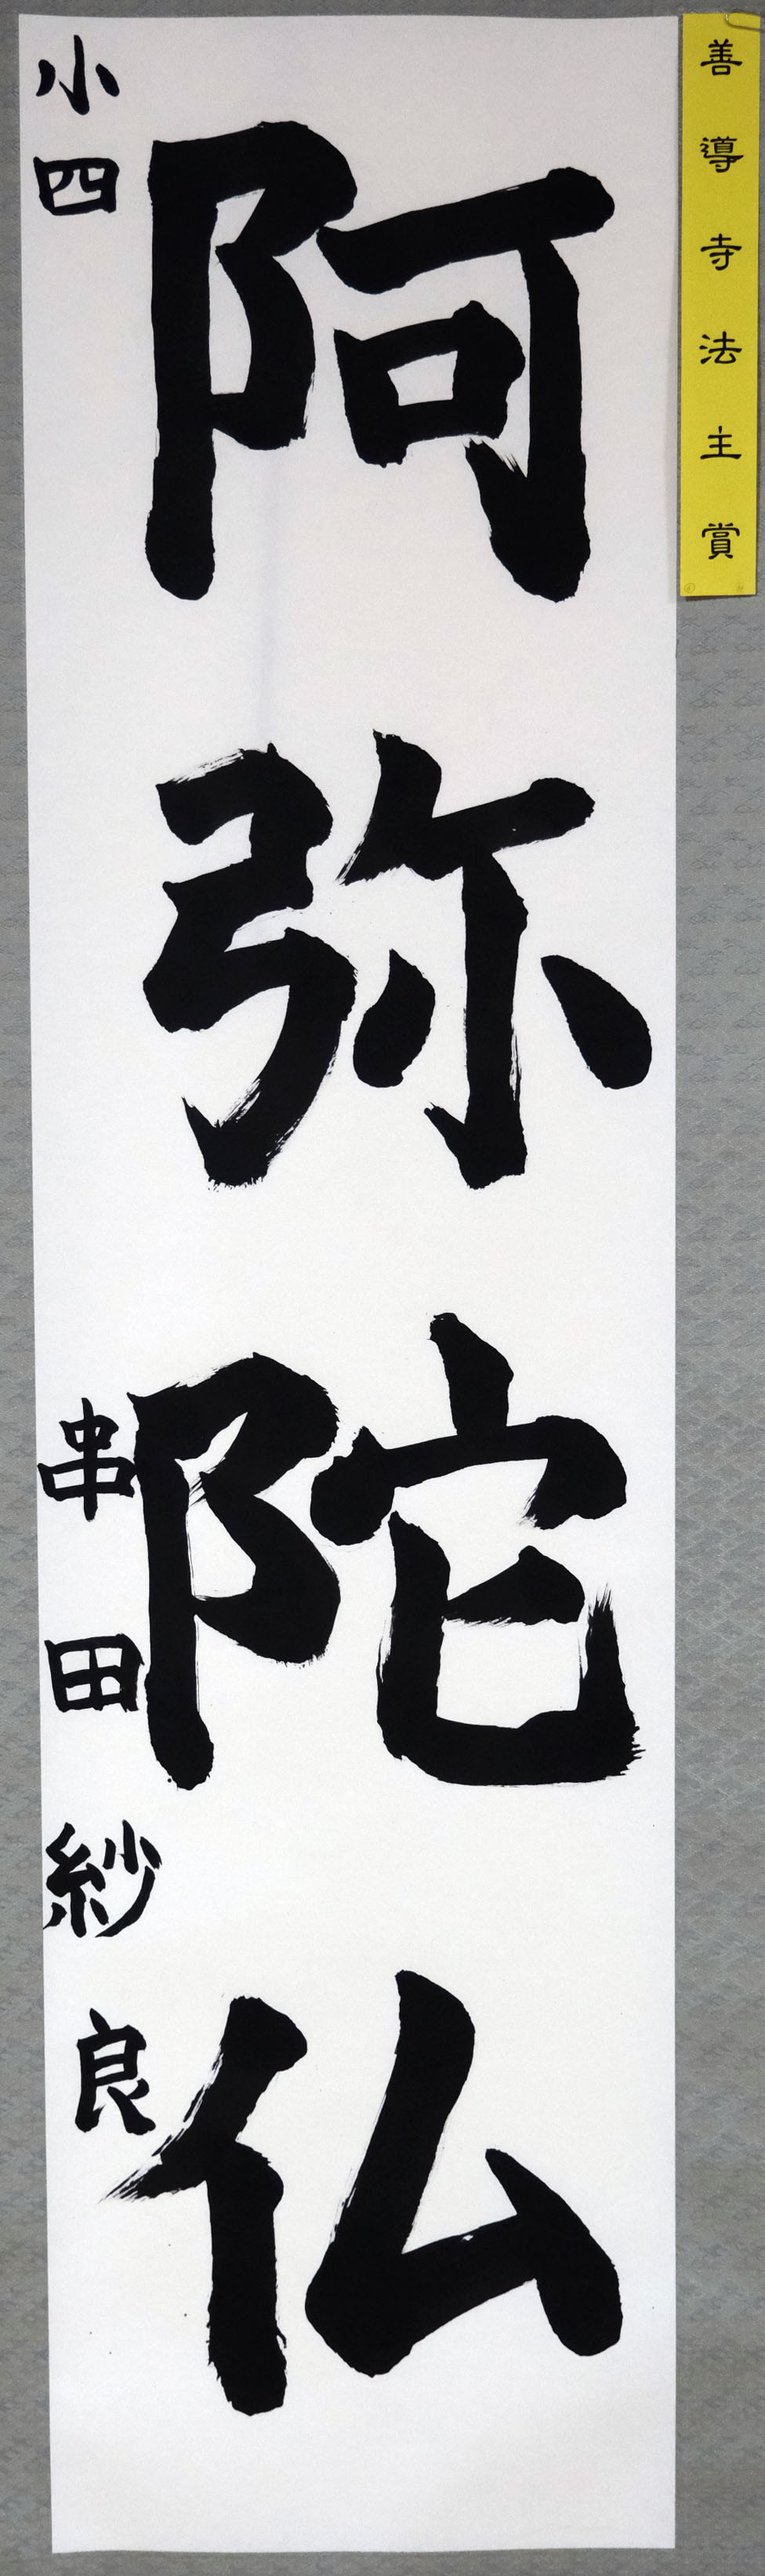 善導寺法主賞
阿弥陀仏
小四 串田紗良